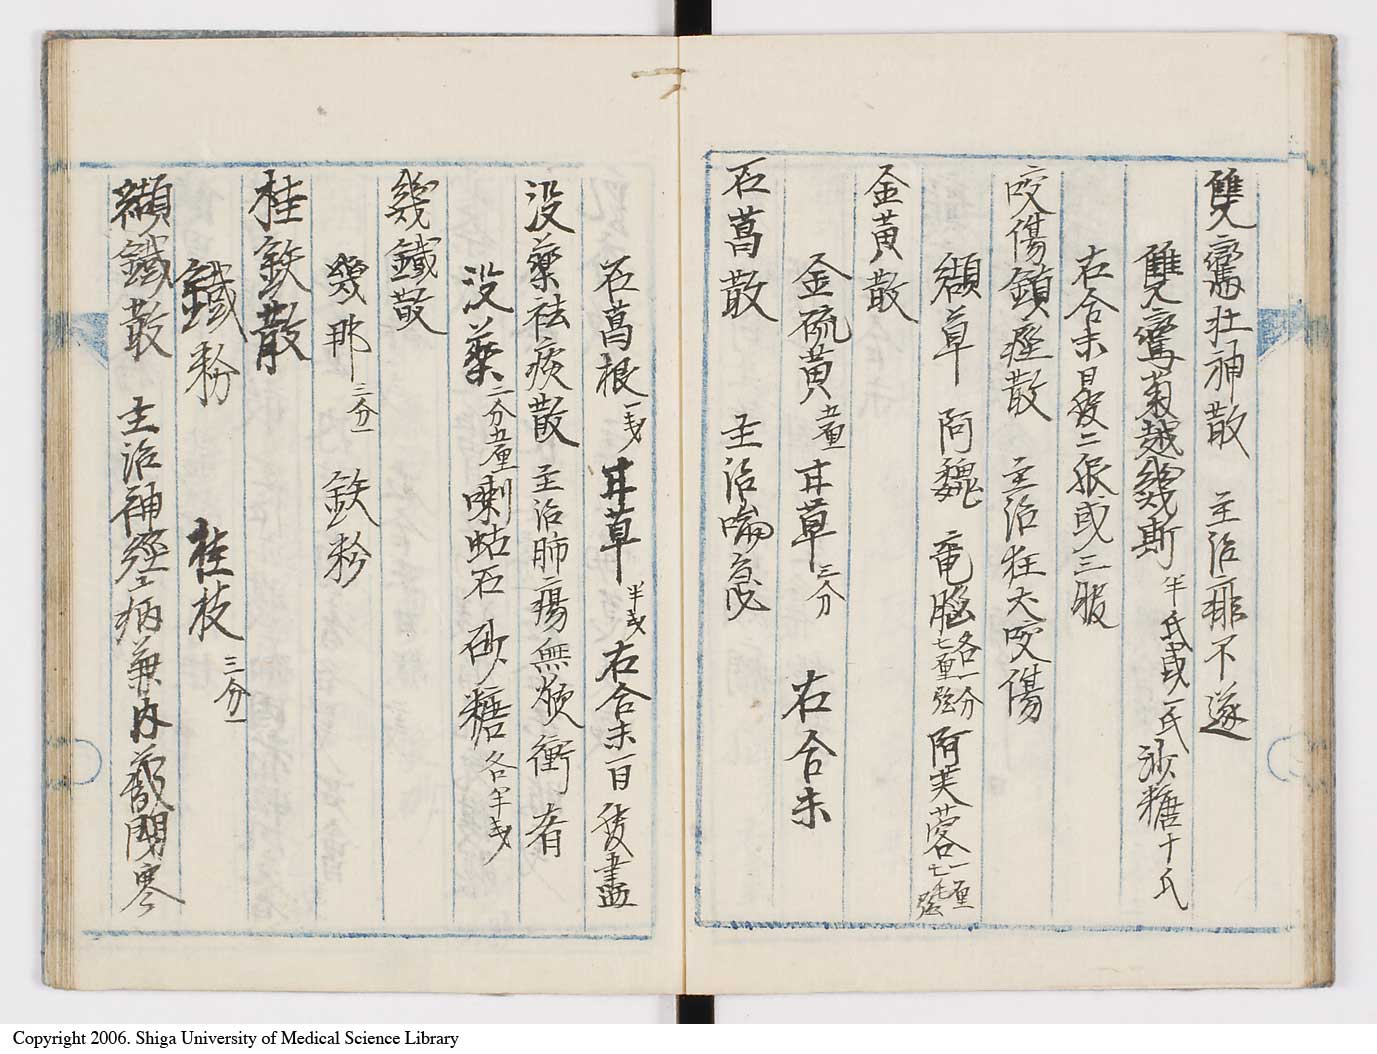 雙鸞壮神散 主治痱不遂
雙鸞菊越幾斯 半氏或一氏 沙糖十氏
右合末日發二服或三服
咬傷鎮痙散 主治狂犬咬傷
纈草 阿魏 竜脳各一分七厘弦 阿芙蓉一厘七毛弦
金黄散
金硫黄五厘 甘草三分 右合末
石菖散 主治喘急
石菖根一戔 甘草半戔 右合末一日後盡
没藥祛痰散 主治肺瘍無焮衝者
没藥二分五厘 喇蛄石 砂糖各半戔
幾鐵散
幾那三分 鉄粉一
桂鉄散
鐵粉 桂枝三分一
纈鐵散 主治神經病兼内蔵閉塞
Copyright 2006. Shiga University of Medical Science Library